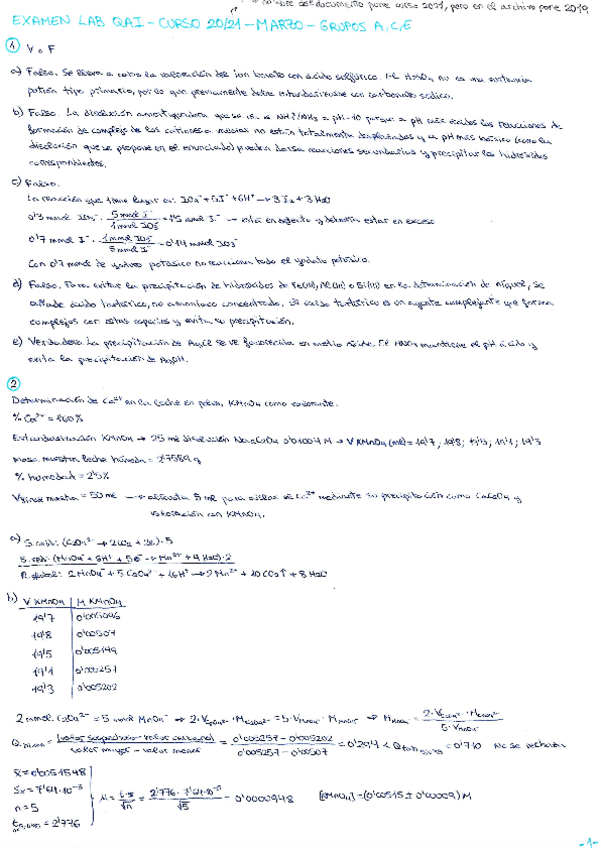 nombre del documento pone curso 2021, pero en el archivo pone 2019
EXAMEN LAB QAI - CURSO 20/21 - MARZO - GRUPOS A, C, E
1 V o F
a) Falso. Se lleva a cabo la valoración del ion borato con ácido sulfúrico. El H2SO4 no es una sustancia
patrón tipo primario, por lo que previamente debe estandarizarse con carbonato sódico.
b) Falso. La disolución amortiguadora que se usa es NH4+/NH3 a pH=10 porque a pH más ácidos las reacciones de
formación de complejo de los cationes a valorar no están totalmente desplazadas y a pH más básico (como la
disolución que se propone en el enunciado) pueden darse reacciones secundarias y precipitar los hidróxidos
correspondientes.
c) Falso.
La reacción que tiene lugar es: IO3- + 5I- + 6H+ → 3I2 + 3H2O
0'3 mmol IO3- · 5 mmol I- / 1 mmol IO3- = 1'5 mmol I- → está en defecto y debería estar en exceso
0'7 mmol I- · 1 mmol IO3- / 5 mmol I- = 0'14 mmol IO3-
Con 0'7 mmol de yoduro potásico no reacciona todo el yodato potásico.
d) Falso. Para evitar la precipitación de hidróxidos de Fe(III), Al(III) o Bi(III) en la determinación de níquel, se
añade ácido tartárico, no amoniaco concentrado. El ácido tartárico es un agente complejante que forma
complejos con estas especies y evita su precipitación.
e) Verdadero. La precipitación de AgCl se ve favorecida en medio ácido. El HNO3 mantiene el pH ácido y
evita la precipitación de AgOH.
2
Determinación de Ca2+ en la leche en polvo. KMnO4 como valorante.
% Ca2+ = 1'60 %
Estandarización KMnO4 → 25 ml disolución Na2C2O4 0'01004 M → V KMnO4 (ml) = 19'7; 19'8; 19'5; 19'1; 19'3
masa muestra leche húmeda = 2'7559 g
% humedad = 2'5%
V muestra = 50 ml → alícuota 5 ml para aislar el Ca2+ mediante su precipitación como CaC2O4 y
valoración con KMnO4.
a) S. oxid: (C2O4 2- → 2CO2 + 2e-)·5
S. red: (MnO4- + 8H+ + 5e- → Mn2+ + 4H2O)·2
R. global: 2MnO4- + 5C2O4 2- + 16H+ → 2Mn2+ + 10CO2↑ + 8H2O
b) V KMnO4 | M KMnO4
19'7 | 0'005096
19'8 | 0'00507
19'5 | 0'005149
19'1 | 0'005257
19'3 | 0'005202
2 mmol C2O4 2- = 5 mmol MnO4- → 2·V C2O4 2-·M C2O4 2- = 5·V MnO4-·M MnO4- → M MnO4- = 2·V C2O4 2-·M C2O4 2- / 5·V MnO4-
Q = |valor sospechoso - valor cercano| / valor mayor - valor menor = 0'005257 - 0'005202 / 0'005257 - 0'00507 = 0'294 < Q = 0'710 No se rechaza
x̄ = 0'0051548
Sx = 7'64·10-5
n = 5
t = 2'776
μ = t·s / √n = 2'776·7'64·10-5 / √5 = 0'0000948 [KMnO4] = (0'00515 ± 0'00009) M
-1-